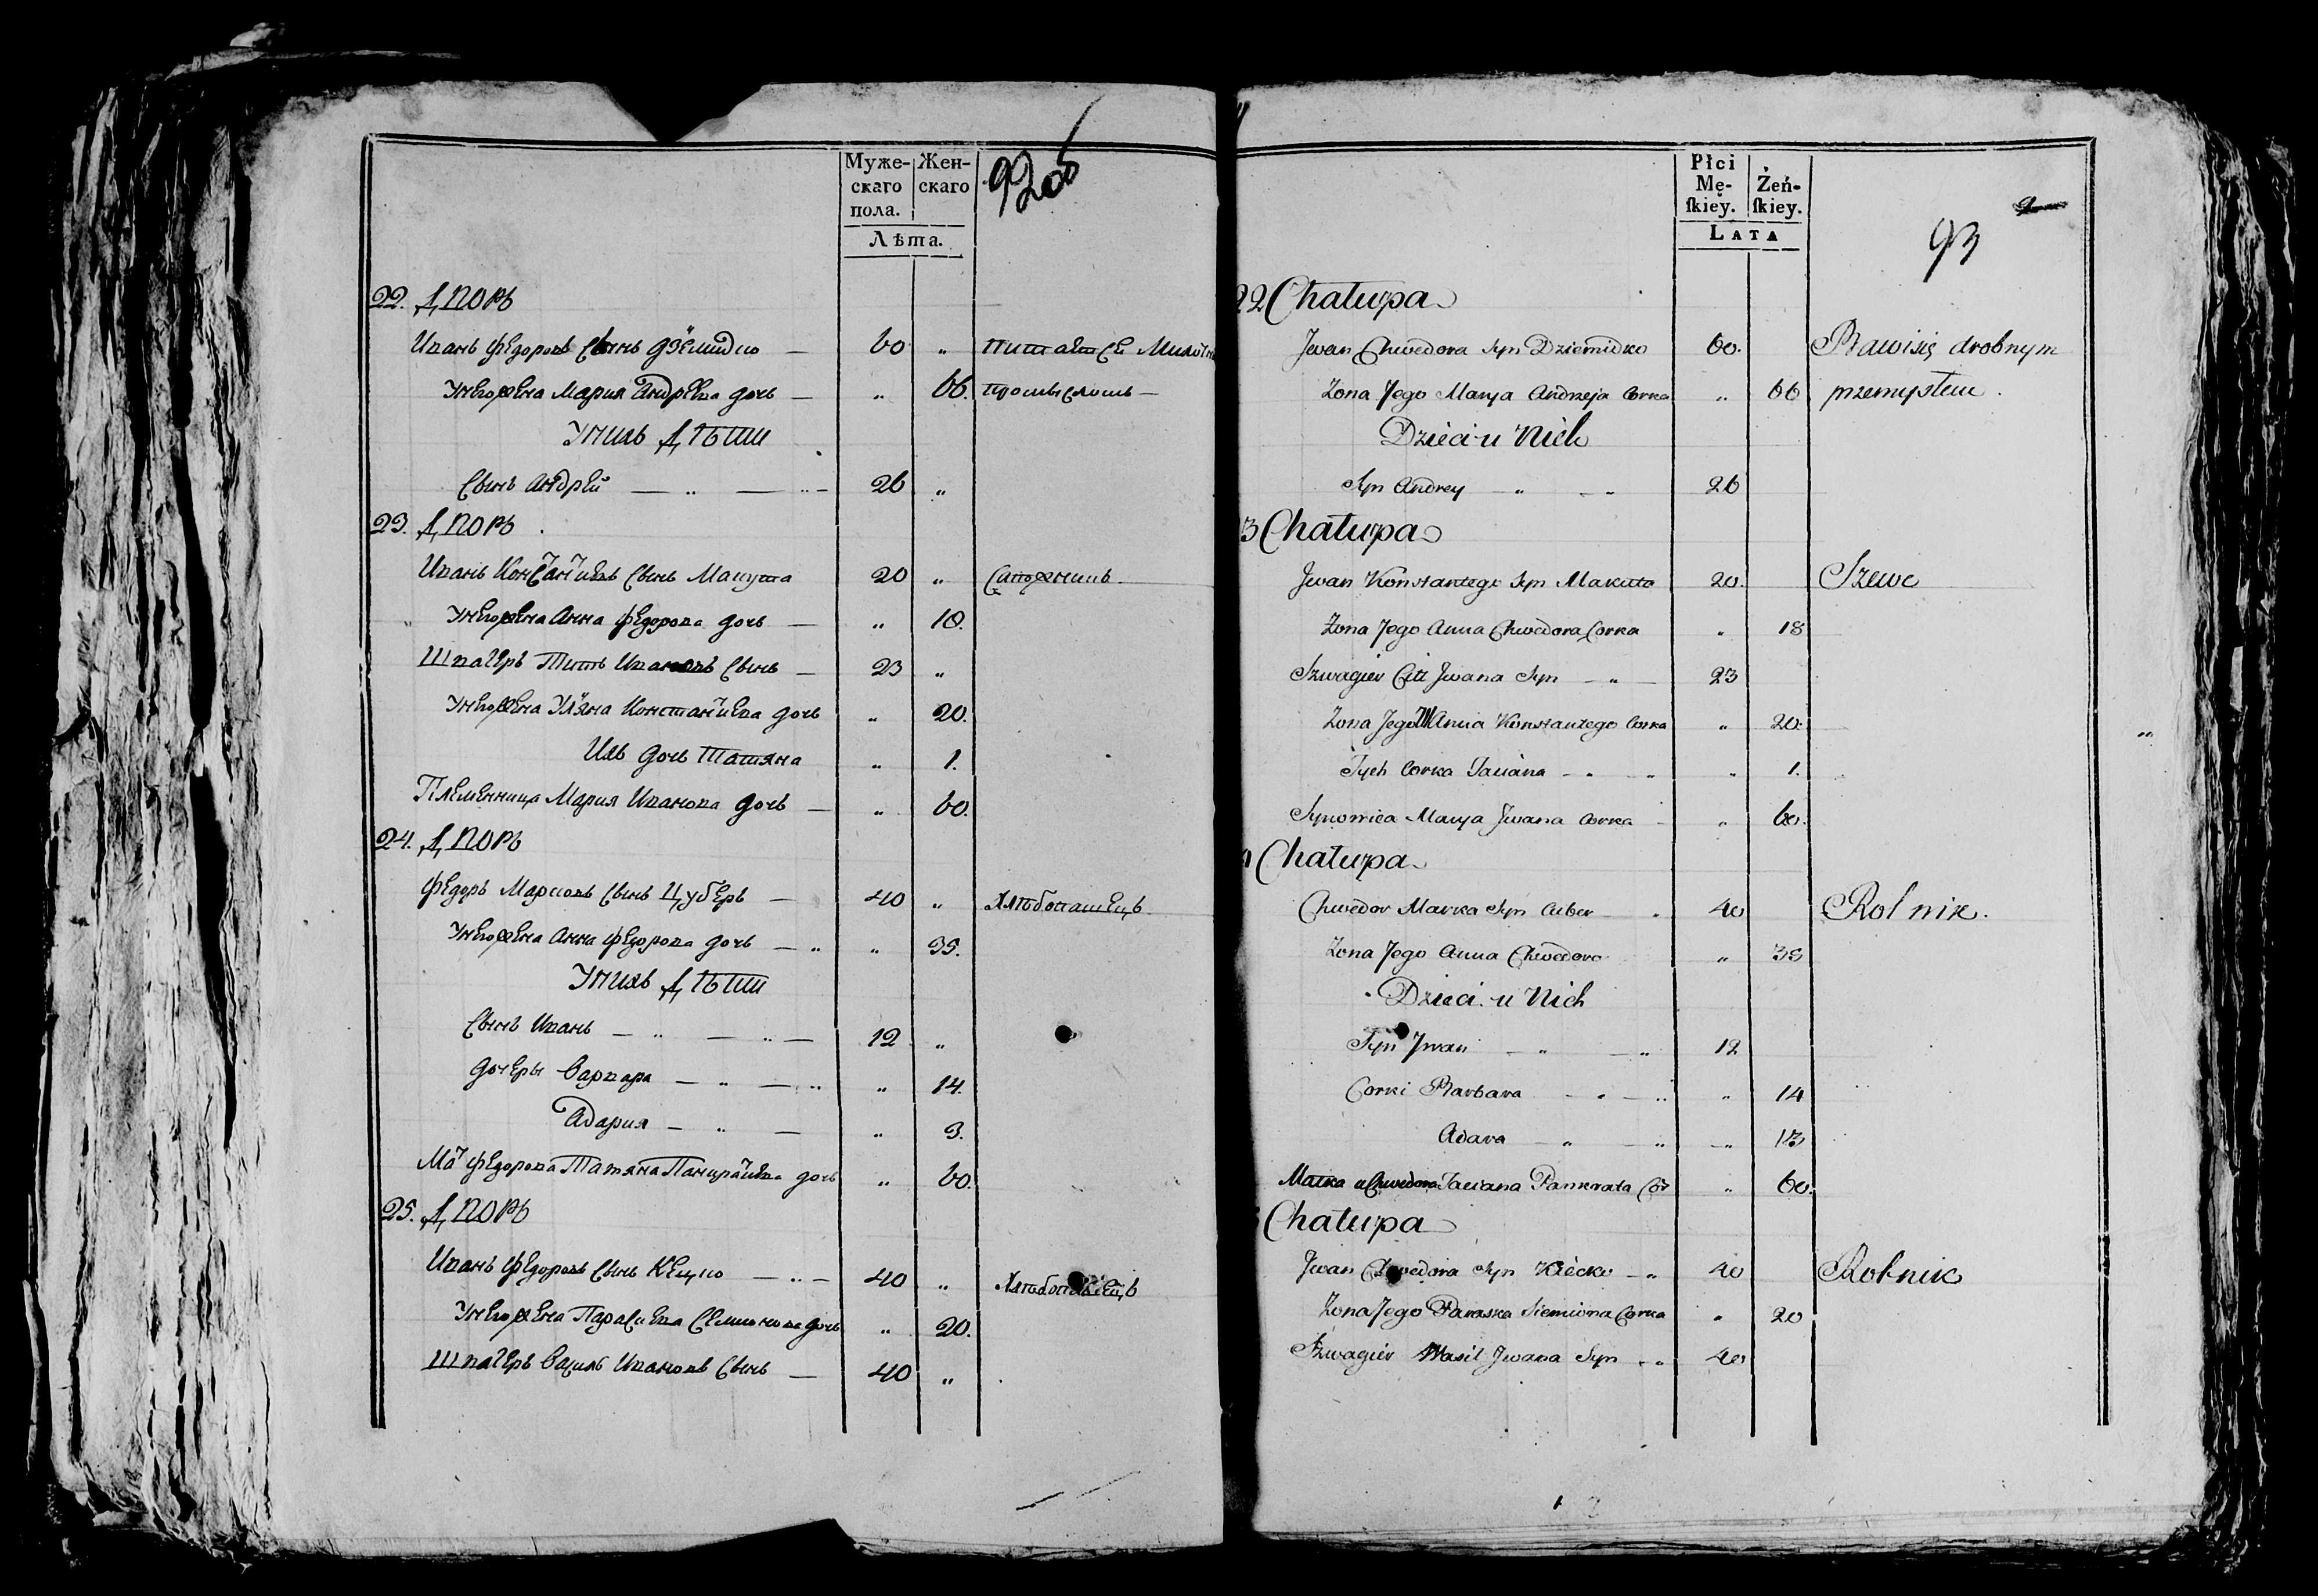 Муже-
скаго
пола.
Жен-
скаго
Лѣта.
92об
22. Дворъ
Иванъ Федоровъ сынъ Дзѣмидко — 60 „ питаетсе Мѣлочн
У него жена Мария Андрѣева дочь — „ 66. промысломъ —
У нихъ Дѣти
Сынъ Андрей — „ — „ — 26 „
23. Дворъ
Иванъ Константиевъ сынъ Макута 20 „ Сапожникъ
У него жена Анна Федорова дочь — „ 18.
Швагеръ Титъ Ивановъ сынъ — 23 „
У него жена Уляна Константиева дочь „ 20.
Ихъ дочь Татяна „ 1.
Племенница Мария Иванова дочь — „ 60.
24. Дворъ
Федоръ Марковъ сынъ Цуберъ — 40 „ Хлѣбопашецъ
У него жена Анна Федорова дочь — „ „ 35.
У нихъ Дѣти
Сынъ Иванъ — „ — „ — 12 „
Дочеры Варвара — „ — „ „ 14.
Адария — „ — „ 3.
Мат Федорова Татяна Панкратиева дочь „ 60.
25. Дворъ
Иванъ Федоровъ сынъ Кецко — „ — 40 „ Хлѣбопашецъ
У него жена Парасиева Семионова дочь „ 20.
Швагеръ Василь Ивановъ сынъ — 40 „
Płci
Mę-
ſkiey.
Żeń-
ſkiey.
LATA
93
22 Chałupa
Jwan Chwedora Syn Dziemidko 60. Bawisię drobnym
Zona Jego Marya Andrzeja Corka „ 66 przemysłem.
Dzieci u Nich
Syn Andrey — „ — „ 26
3 Chałupa
Jwan Konstantego Syn Makuta 20. Szewc
Zona Jego Anna Chwedora Corka „ 18
Szwagier Cit Jwana Syn — „ — 23
Zona Jego Ulanna Konstantego Corka „ 20.
Tych Corka Taciana — „ „ „ 1.
Synowica Marya Jwana Corka — „ 60.
Chałupa
Chwedor Marka Syn Cuber — „ 40 Rolnik.
Zona Jego Anna Chwedora „ 35
Dzieci u Nich
Syn Jwan — „ — „ 12
Corki Barbara — „ — „ „ 14
Adara — „ — „ — „ 13
Matka u Chwedora Taciana Pankrata Cór „ 60.
Chałupa
Jwan Chwedora Syn Kiecko — „ 40 Rolnik
Zona Jego Paraska Siemiona Corka „ 20
Szwagier Wasil Jwana Syn „ „ 40